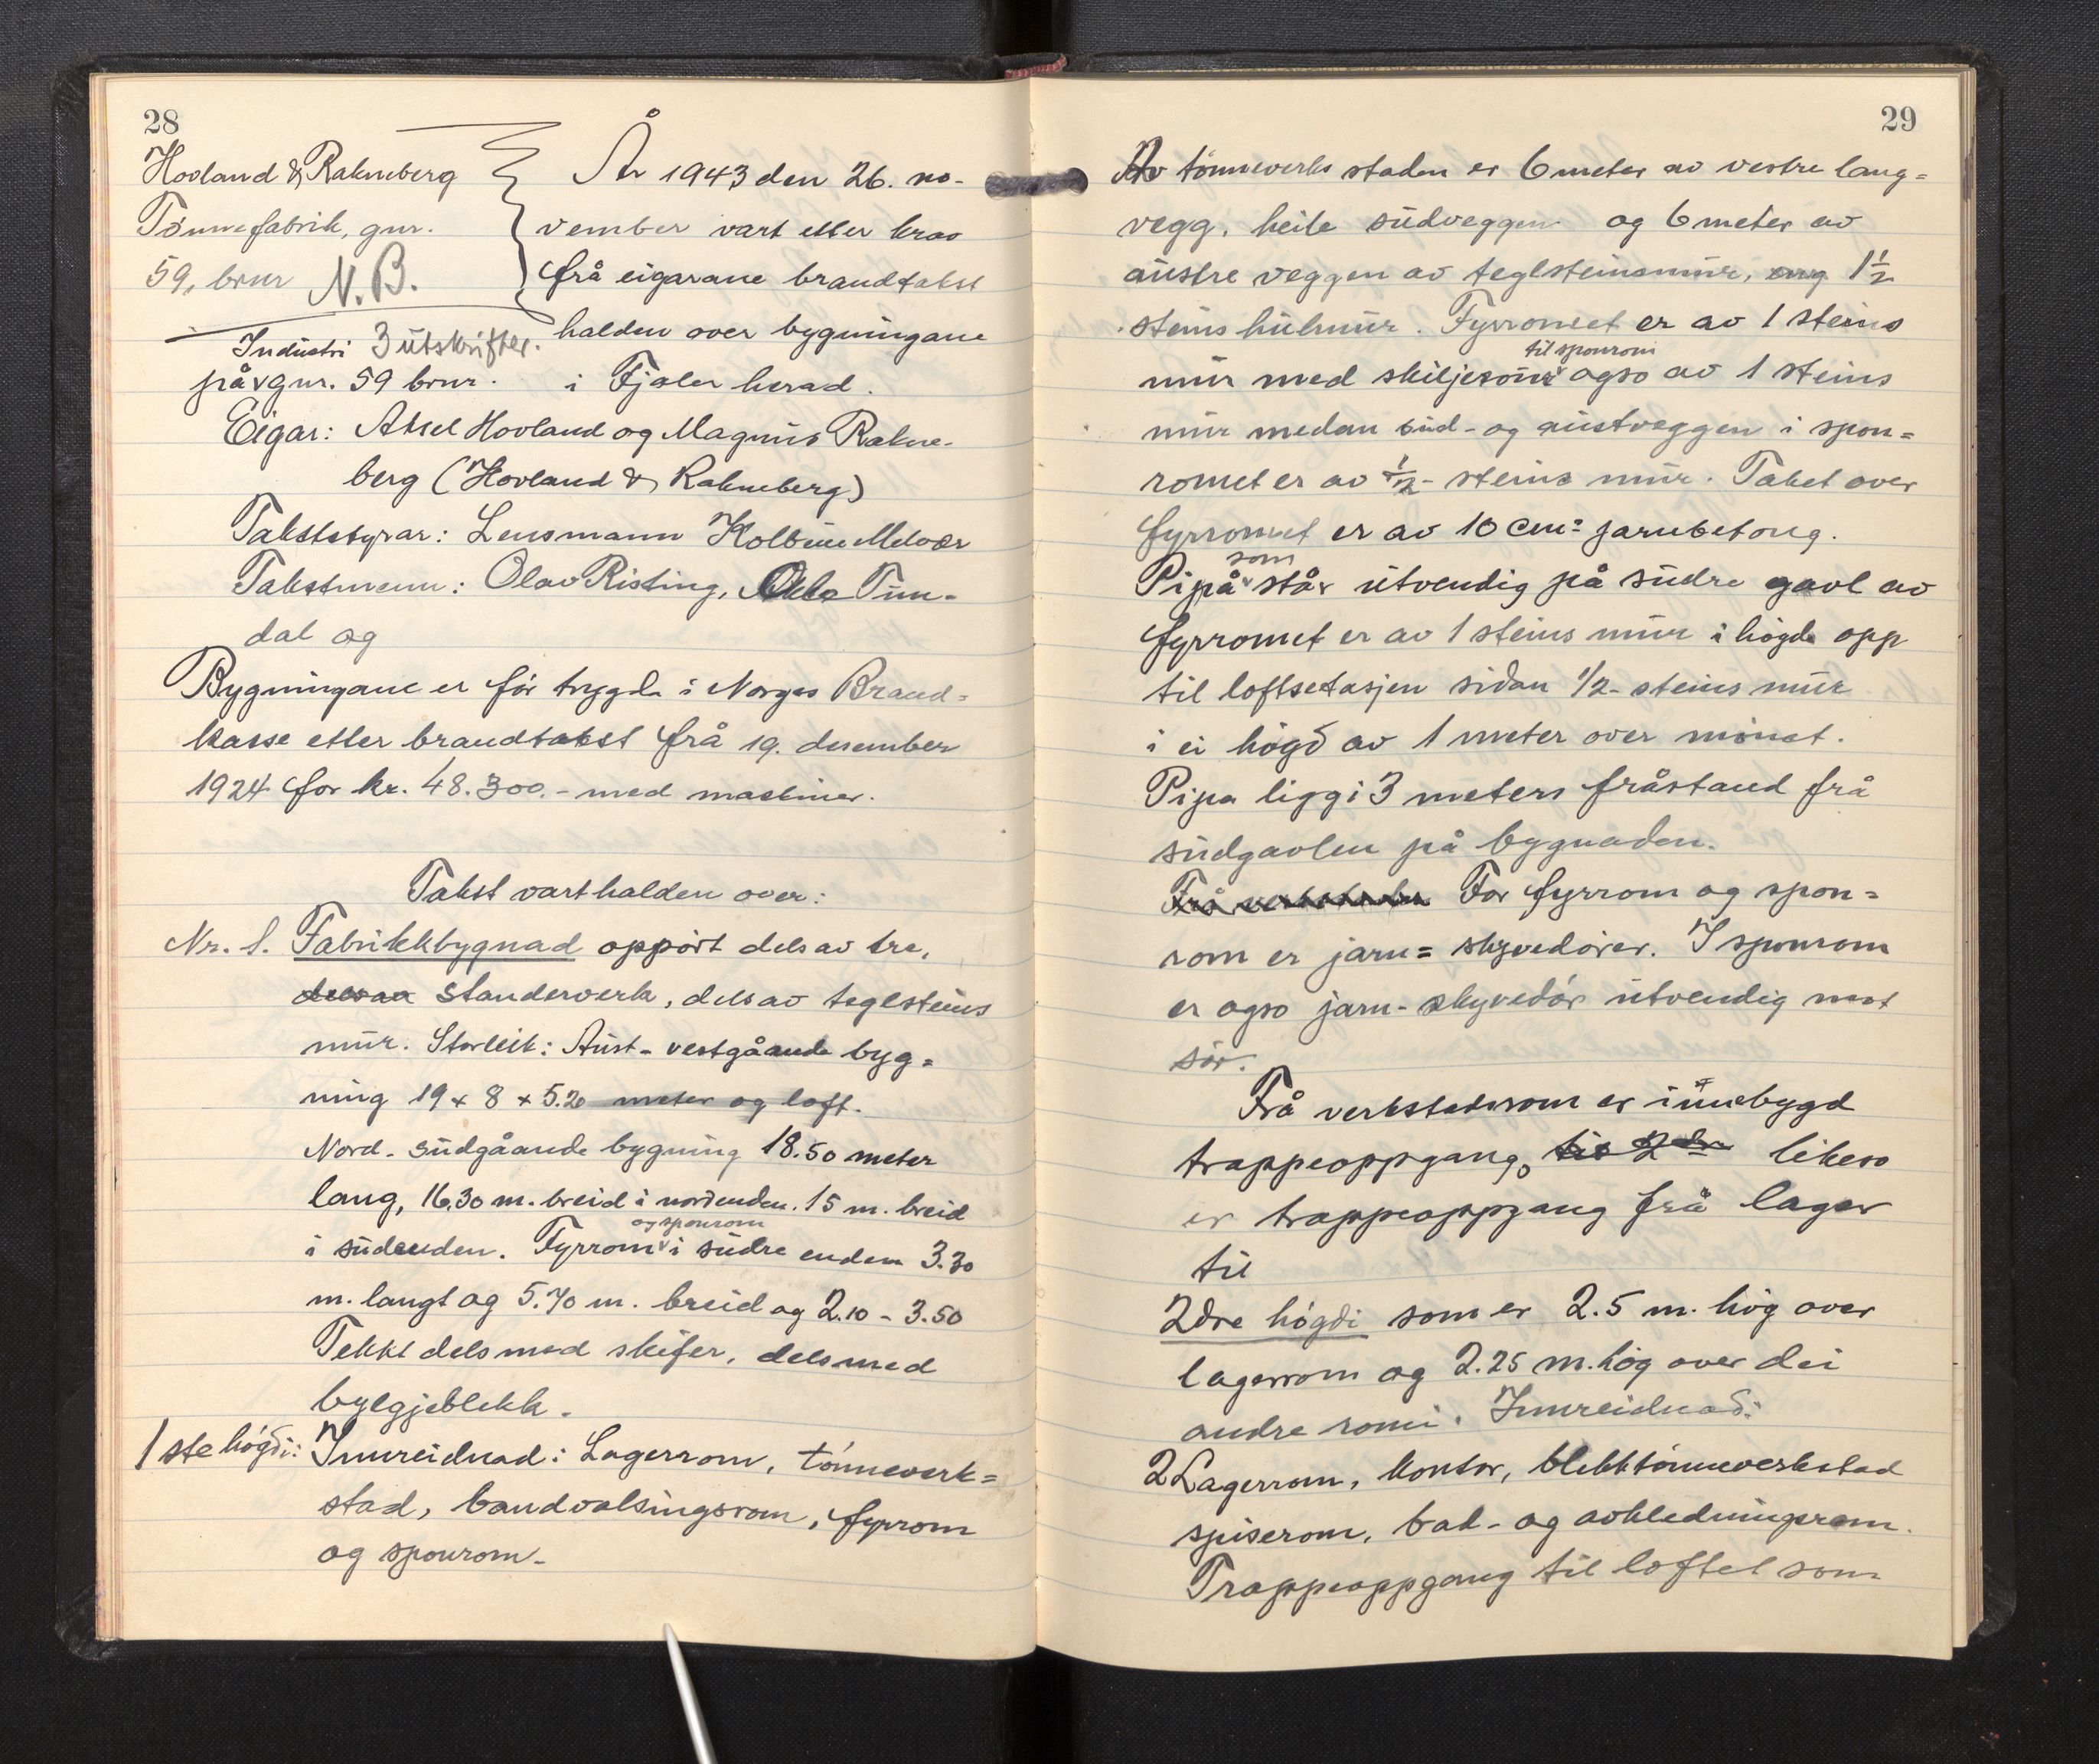 28
Hovland & Rakneberg
Tønnefabrik, gnr.
59, brnr N.B.
Industri 3 utskrifter.
År 1943 den 26. no-
vember vart etter krav
frå eigarane brandtakst
halden over bygningane
på gnr. 59 brnr. i Fjaler herad.
Eigar: Aksel Hovland og Magnus Rakne-
berg (Hovland & Rakneberg)
Takststyrar: Lensmann Kolbein Melvær
Takstmenn: Olav Risting, Tun-
dal og
Bygningane er før trygda i Norges Brand-
kasse etter brandtakst frå 19. desember
1924 for kr. 48.300.- med maskiner.
Takst vart halden over:
Nr. 1. Fabrikkbygnad oppørt dels av tre,
dels av standerverk, dels av teglsteins
mur. Storleik: Aust-vestgåande byg=
ning 19 x 8 x 5.20 meter og loft.
Nord-sudgåande bygning 18.50 meter
lang, 16,30 m. breid i nordenden. 15 m. breid
og sponrom
i sudenden. Fyrrom i sudre enden 3.30
m. langt og 5.70 m. breid og 2.10 - 3.50
Tekkt dels med skifer, dels med
bylgjeblekk.
1ste høgdi: Innreidnad: Lagerrom, tønneverk=
stad, bandvalsingsrom, fyrrom
og sponrom.
29
Av tønneverkstaden er 6 meter av vestre lang=
vegg, heile sudveggen og 6 meter av
austre veggen av teglsteinsmur, 1½
steins hulmur. Fyrromet er av 1 steins
til sponrom
mur med skiljeromr ogso av 1 steins
mur medan sud- og austveggen i spon=
romet er av ½-steins mur. Taket over
fyrromet er av 10 cm= jarnbetong.
som
Pipå står utvendig på sudre gavl av
fyrromet er av 1 steins mur i høgde opp
til loftsetasjen sidan 1/2-steins mur
i ei høgd av 1 meter over mønet.
Pipa ligg i 3 meters fråstand frå
sudgavlen på bygnaden.
For fyrrom og spon=
rom er jarn= skyvedører. I sponrom
er ogso jarn-skyvedør utvendig mot
sør.
Frå verkstadsrom er innebygd
trappeoppgang, til 2dre likeso
er trappeoppgang frå lager
til
2dre høgdi som er 2.5 m. høg over
lagerrom og 2.25 m. høg over dei
andre romi. Innreidnad:
2 Lagerrom, kontor, blekktønneverkstad
spiserom, bad- og avkledningsrom.
Trappeoppgang til loftet som